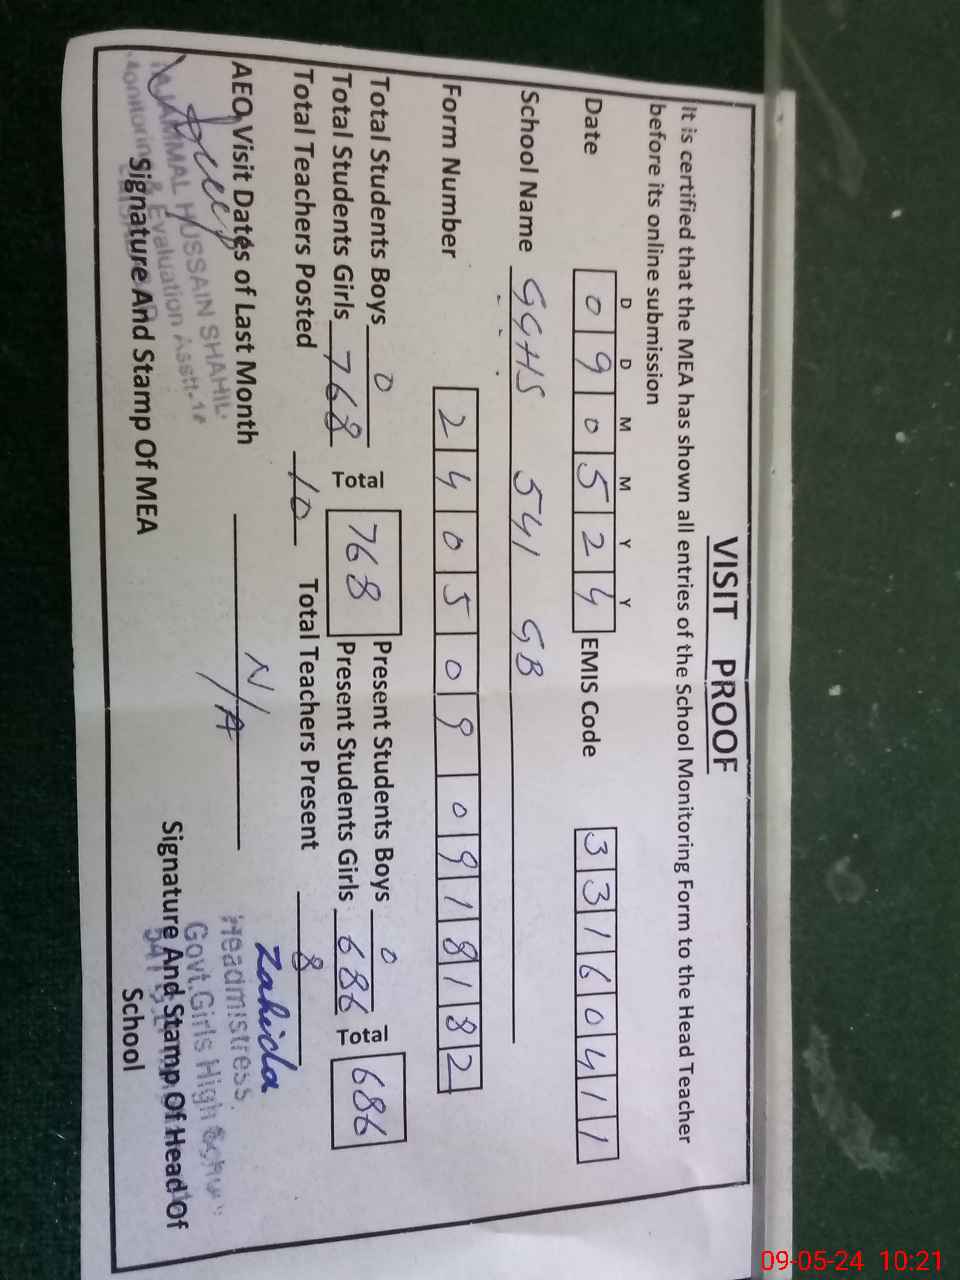 VISIT PROOF
It is certified that the MEA has shown all entries of the School Monitoring Form to the Head Teacher
before its online submission
D D M M Y Y
Date 0 9 0 5 2 4 EMIS Code 3 3 1 6 0 4 1 1
School Name GGHS 541 GB
Form Number 2 4 0 5 0 9 0 9 1 8 1 8 2
Total Students Boys 0 Present Students Boys 0
Total Students Girls 768 Total 768 Present Students Girls 686 Total 686
Total Teachers Posted 10 Total Teachers Present 8
AEO Visit Dates of Last Month N/A
Zahida
Headmistress
Govt.Girls High
HUSSAIN SHAHID
Monitoring & Evaluation Asstt-
Signature And Stamp Of MEA
Signature And Stamp Of Head Of
School
09-05-24 10:21